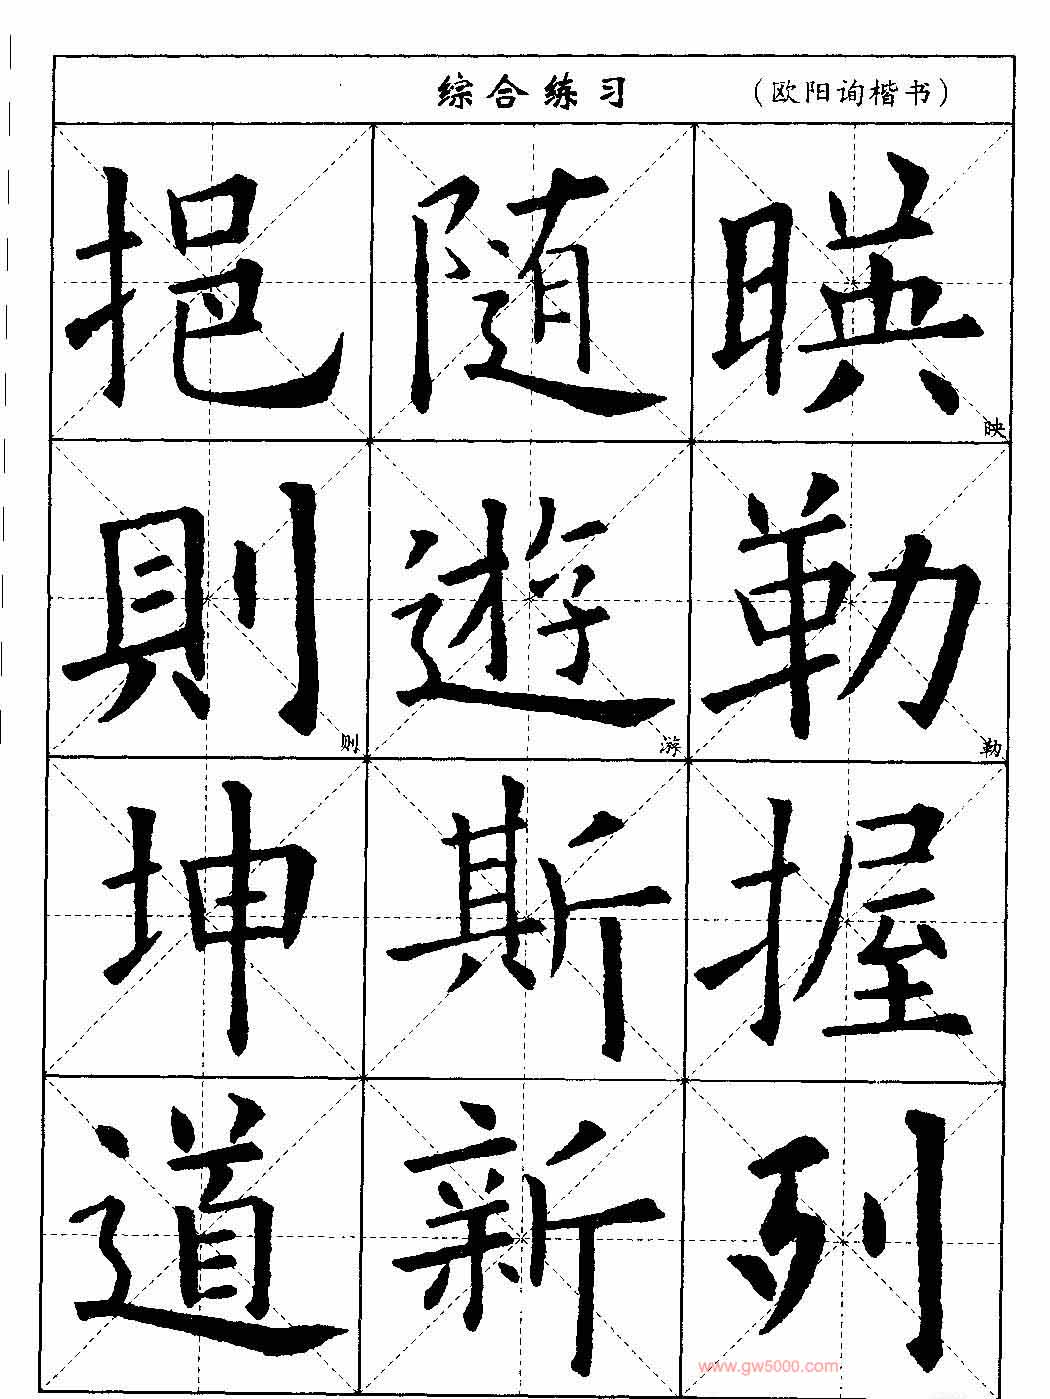 综合练习 （欧阳询楷书）
挹 随 暎
映
則 遊 勒
则 游 勒
坤 斯 握
道 新 列
www.gw5000.com